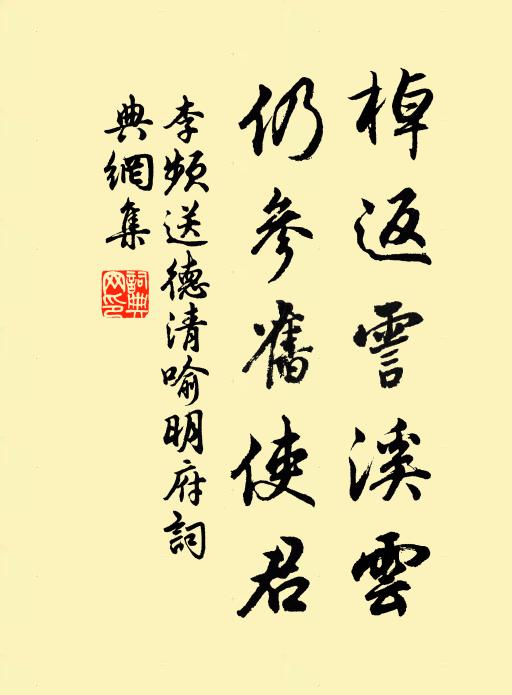 棹返霅溪雲
仍參舊使君
李频送德清喻明府詞
典網集
詞典網印